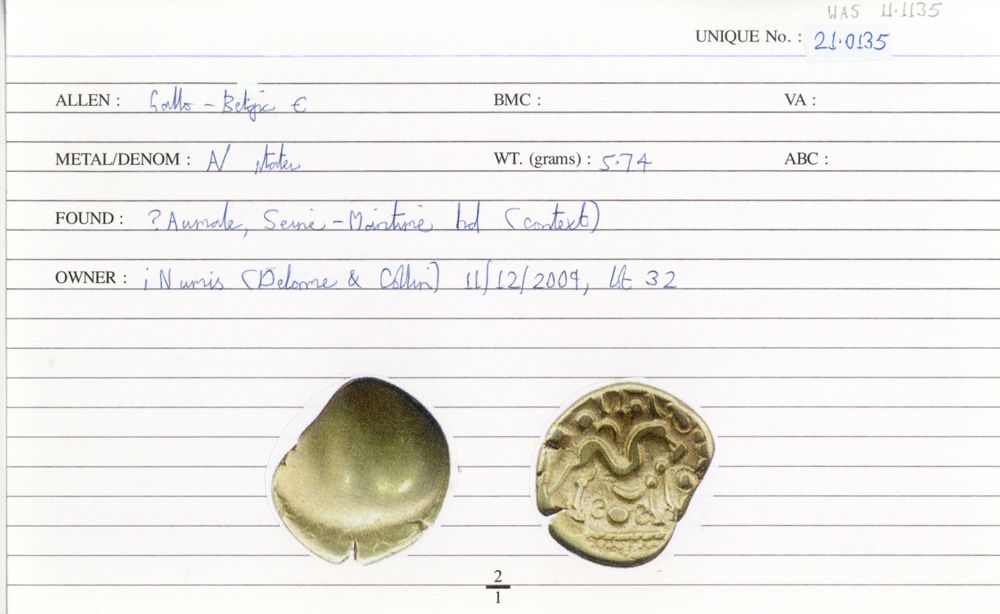 WAS 11.1135
UNIQUE No. : 21.0135
ALLEN : Gallo-Belgic E BMC : VA :
METAL/DENOM : A/ stater WT. (grams) : 5.74 ABC :
FOUND : ? Aumale, Seine-Maritime hd (context)
OWNER : iNumis (Delorme & Collin) 11/12/2009, lot 32
2
1